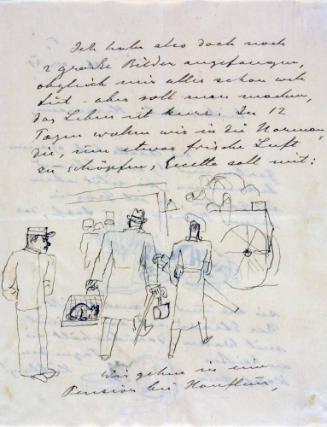 Ich habe also doch noch
2 große Bilder angefangen,
obgleich mir alles schon weh
tut - aber soll man machen,
das Leben ist kurz. In 12
Tagen wollen wir in die Norman
die, um etwas frische Luft
zu schöpfen, Gisella soll mit:
Wir gehen in eine
Pension bei Honfleur,